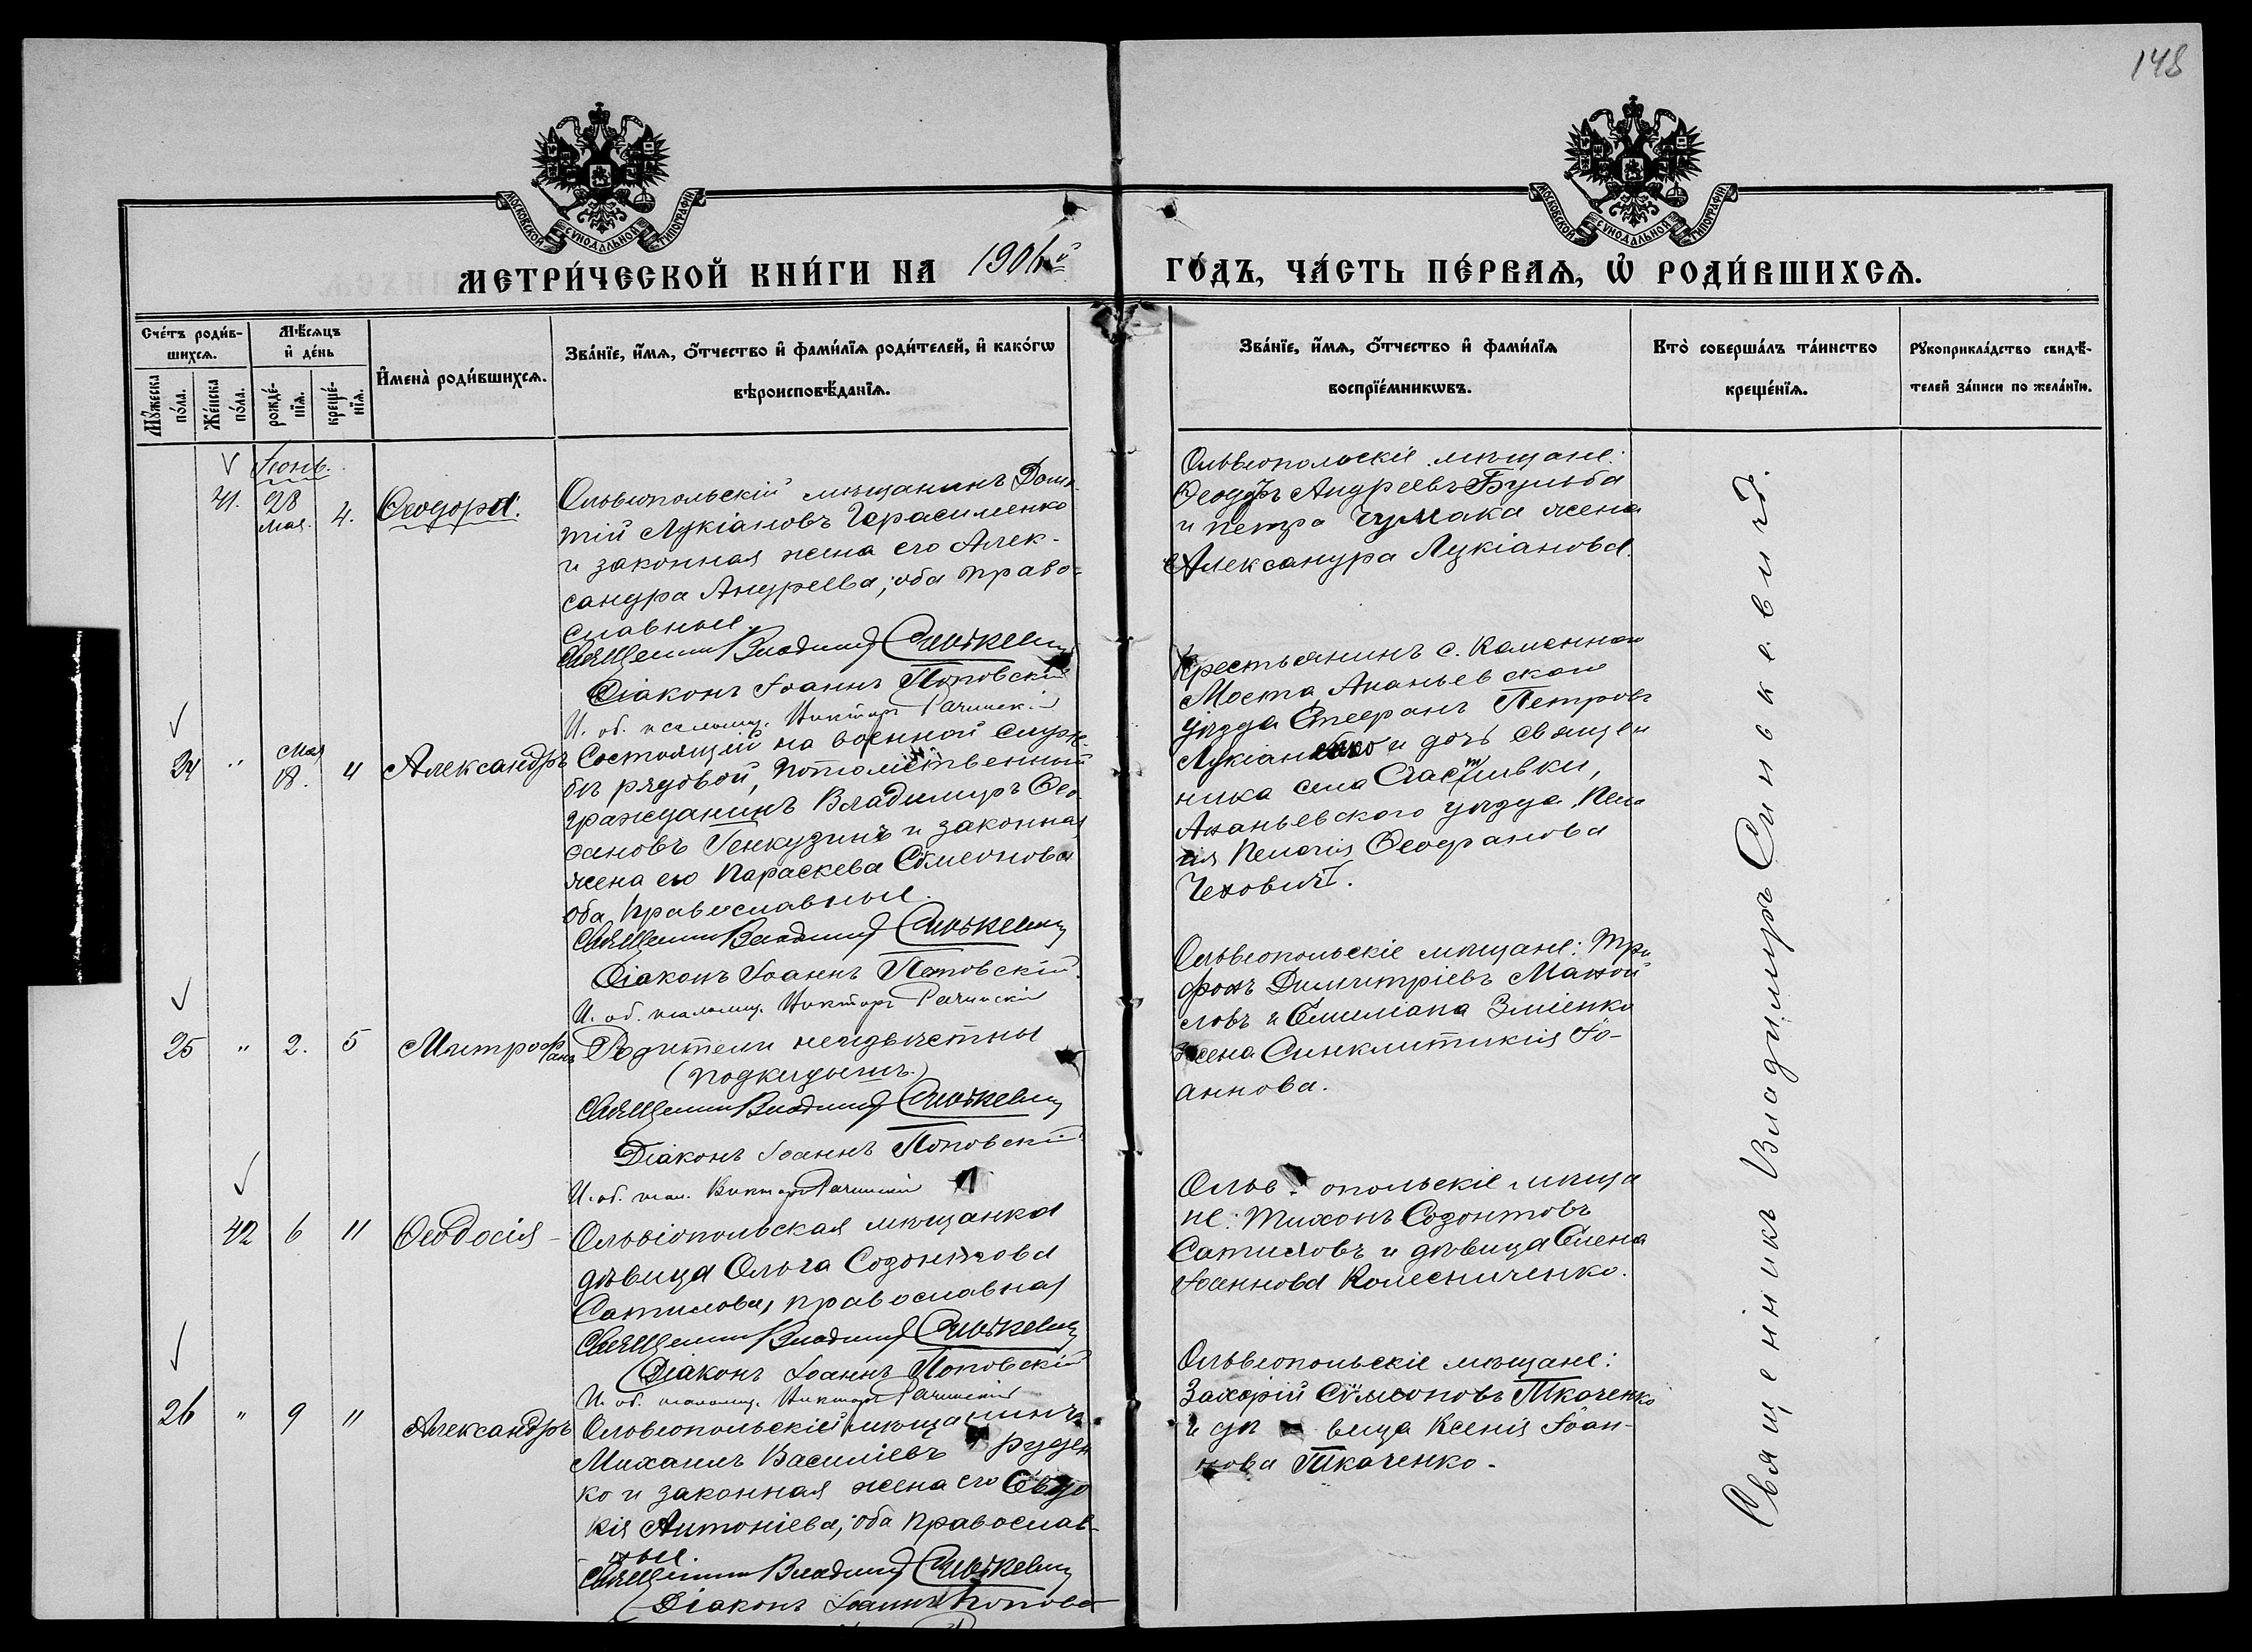 148
МОСКОВСКОЙ СѴНОДАЛЬНОЙ ТИПОГРАФІИ
МОСКОВСКОЙ СѴНОДАЛЬНОЙ ТИПОГРАФІИ
МЕТРИ́ЧЕСКОЙ КНИ́ГИ НА 1906й
ГО́ДЪ, ЧА́СТЬ ПЕ́РВАѦ, Ѽ РОДИ́ВШИХСѦ.
Сче́тъ роди́в-
шихсѧ.
Мѣ́сѧцъ
и҆ де́нь
Мꙋ́жеска
по́ла.
Же́нска
по́ла.
рожде́-
нїѧ.
креще́-
нїѧ.
И҆мена̀ роди́вшихсѧ.
Зва́нїе, и҆́мѧ, ѻ҆́тчество и҆ фами́лїѧ роди́телей, и҆ како́гѡ
вѣроисповѣ́данїѧ.
Зва́нїе, и҆́мѧ, ѻ҆́тчество и҆ фами́лїѧ
воспрїе́мникѡвъ.
Кто̀ соверша́лъ та́инство
креще́нїѧ.
Рꙋкоприкла́дство свидѣ́-
телей за́писи по жела́нїю.
Іюнь.
41. 28 мая. 4. Ѳеодора.
Ольвіопольскій мѣщанинъ
тій Лукіановъ Герасименко
и законная жена его Алек-
сандра Андреева; оба право-
славные.
Священникъ Владимиръ Синькевич
Діаконъ Іоаннъ Поповскій
И. об. псаломщ. Викторъ Рачинскій
Ольвіопольскіе мѣщане:
Ѳеодоръ Андреевъ Бульба
и Петра Чумака жена
Александра Лукіанова.
24 " мая 18. 4 Александръ
Состоящій на военной служ-
бѣ рядовой, потомственный
гражданинъ Владимиръ Ѳео-
фановъ Генкузинъ и законная
жена его Параскева Сѵмеонова
оба православные.
Священникъ Владимиръ Синькевич
Діаконъ Іоаннъ Поповскій.
И. об. псаломщ. Викторъ Рачинскій
Крестьянинъ с. Каменнаго
Моста Ананьевскаго
уѣзда Стефанъ Петровъ
Лукіаненко и дочь священ
ника села Счастливки,
Ананьевского уѣзда, Пела
гія Ѳеофанова
Чехович.
25 " 2. 5 Митрофанъ
Родители неизвѣстны
(подкидышъ.)
Священникъ Владимиръ Синькевич
Діаконъ Іоаннъ Поповскій
И. об. псал. Викторъ Рачинскій
Ольвіопольскіе мѣщане: Три
фонъ Димитріевъ Маной
ловъ и Емиліана Зміенко
жена Синклитикія Іо-
аннова.
42 6 11 Ѳеодосія
Ольвіопольская мѣщанка
дѣвица Ольга Созонтова
Сатилова, православная
Священникъ Владимиръ Синькевич
Діаконъ Іоаннъ Поповскій
И. об. псаломщ. Викторъ Рачинскій
Ольвіопольскіе мѣща
не: Тихонъ Созонтовъ
Сатиловъ и дѣвица Елена
Іоаннова Колесниченко.
26 " 9 11 Александръ
Ольвіопольскій мѣщанинъ
Михаилъ Василіевъ Руден
ко и законная жена его Евдо
кія Антоніева; оба православ-
ные.
Священникъ Владимиръ Синькевич
Діаконъ Іоаннъ Поповс
Ольвіопольскіе мѣщане:
Захарій Сѵмеоновъ Ткаченко
и дѣвица Ксенія Іоан-
нова Ткаченко.
Священникъ Владиміръ Синькевичъ.